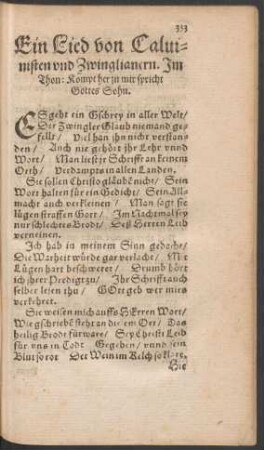 353
Ein Lied von Calui-
nisten vnd Zwinglianern. Im
Thon: Kompt her zu mir spricht
Gottes Sohn.
ES geht ein Gschrey in aller Welt/
Der Zwingler Glaub niemand ge-
felle/ Viel han jhn nicht verstan
den/ Auch nie gehört jhr Lehr vnnd
Wort/ Man liest jr Schrifft an keinem
Orth/ Verdampts in allen Landen.
Sie sollen Christo gläubē nicht/ Sein
Wort halten für ein Gedicht/ Sein All-
macht auch verkleinen/ Man sagt sie
lügen straffen Gott/ Im Nachtmal sey
nur schlechtes Brodt/ Deß HErren Leib
verneinen.
Ich hab in meinem Sinn gedacht/
Die Warheit würde gar verlacht/ Mit
Lügen hart beschweret/ Drumb hört
ich jhrer Predigt zu/ Ihr Schrifft auch
selber lesen thu/ GOtt geb wer mirs
verkehret.
Sie weisen mich auffs HErren Wort/
Wie gschriebē steht an diesem Ort/ Das
heilig Brodt fürware/ Sey Christi Leib
für vns in Todt Gegeben/ vnnd sein
Blut so rot Der Wein im Kelch so klare.
Sie